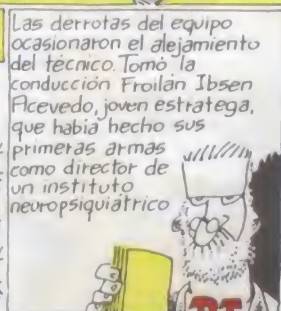 Las derrotas del equipo
ocasionaron el alejamiento
del técnico. Tomó la
conducción Froilán Ibsen
Acevedo, joven estratega,
que había hecho sus
primeras armas
como director de
un instituto
neuropsiquiátrico
DT